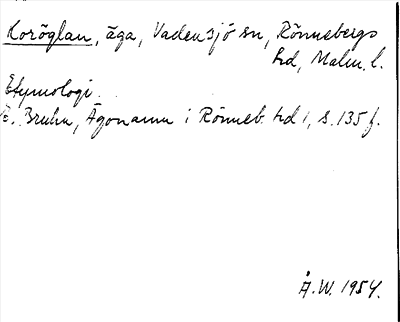 Koröglan, äga, Vadensjö sn, Rönnebergs
hd, Malm. l.
Etymologi.
E. Bruhn, Ägonamn i Rönneb. hd 1, s. 135 f.
Å.W. 1954.